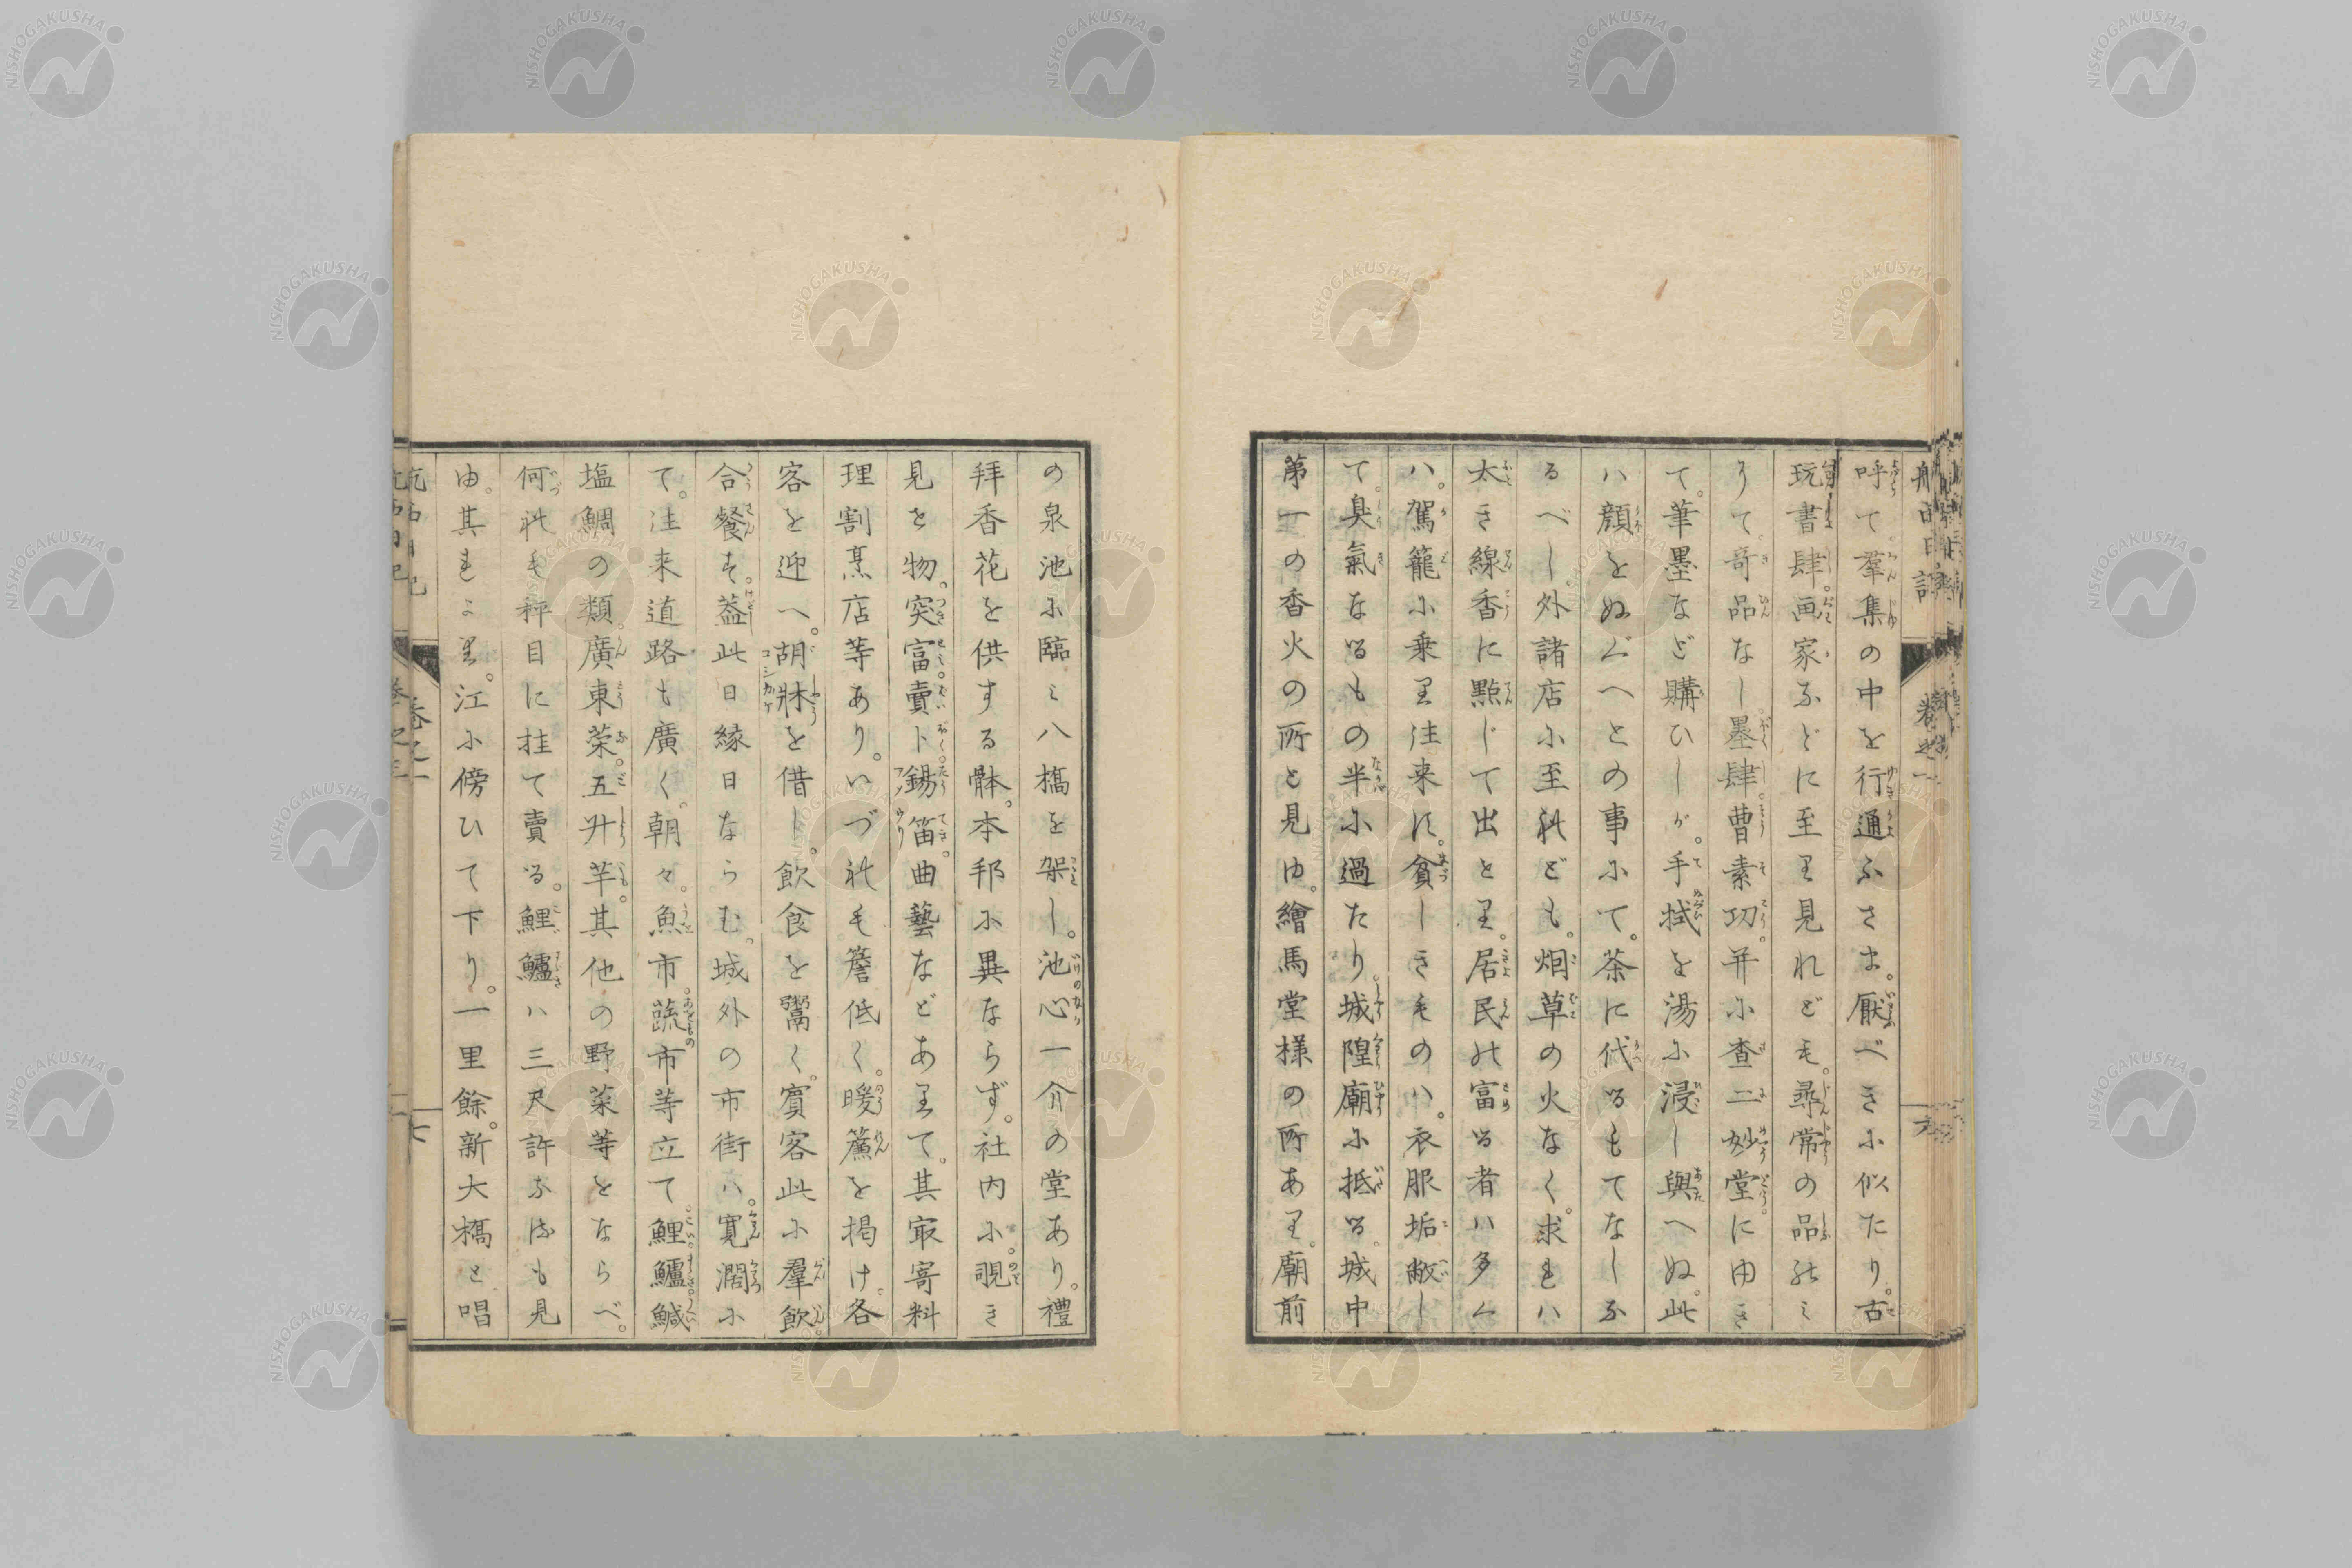 呼て。羣集の中を行通ふさま。厭べきに似たり。古
玩書肆。画家などに至り見れども。尋常の品のミ
りて奇品なし墨肆。曹素功。并に査二妙堂にゆき
て。筆墨など購ひしが。手拭を湯に浸し與へぬ。此
ハ顔をぬぐへとの事にて。茶に代るもてなしな
るべし外諸店に至れども。烟草の火なく。求れハ
太き線香に點じて出とり。居民の富る者ハ多く
ハ。駕籠に乗り往来に。貧しきものハ。衣服垢敝し
て。臭氣なるもの半に過たり。城隍廟に抵る。城中
第一の香火の所と見ゆ。繪馬堂様の所あり。廟前
の泉池に臨ミ八橋を架し。池心一介の堂あり。禮
拝香花を供する躰。本邦に異ならず。社内に。覗き
見せ物。突富。賣卜錫笛。曲藝などあまて。其寂寄料
理割烹店等あり。いづれも簷低く。暖簾を掲け。各
客を迎へ。胡牀を借し。飲食を鬻く。賓客此に羣飲
合餐す。蓋此日縁日ならむ。城外の市街ハ。寛濶に
て。往来道路も廣く。朝々。魚市。蔬市等立て鯉鱸鰔
塩鯛の類。廣東菜。五升芋。其他の野菜等をならべ。
何れも秤目に挂て賣る。鯉鱸ハ三尺許なるも見
ゆ。其より。江に傍ひて下り。一里餘。新大橋と唱